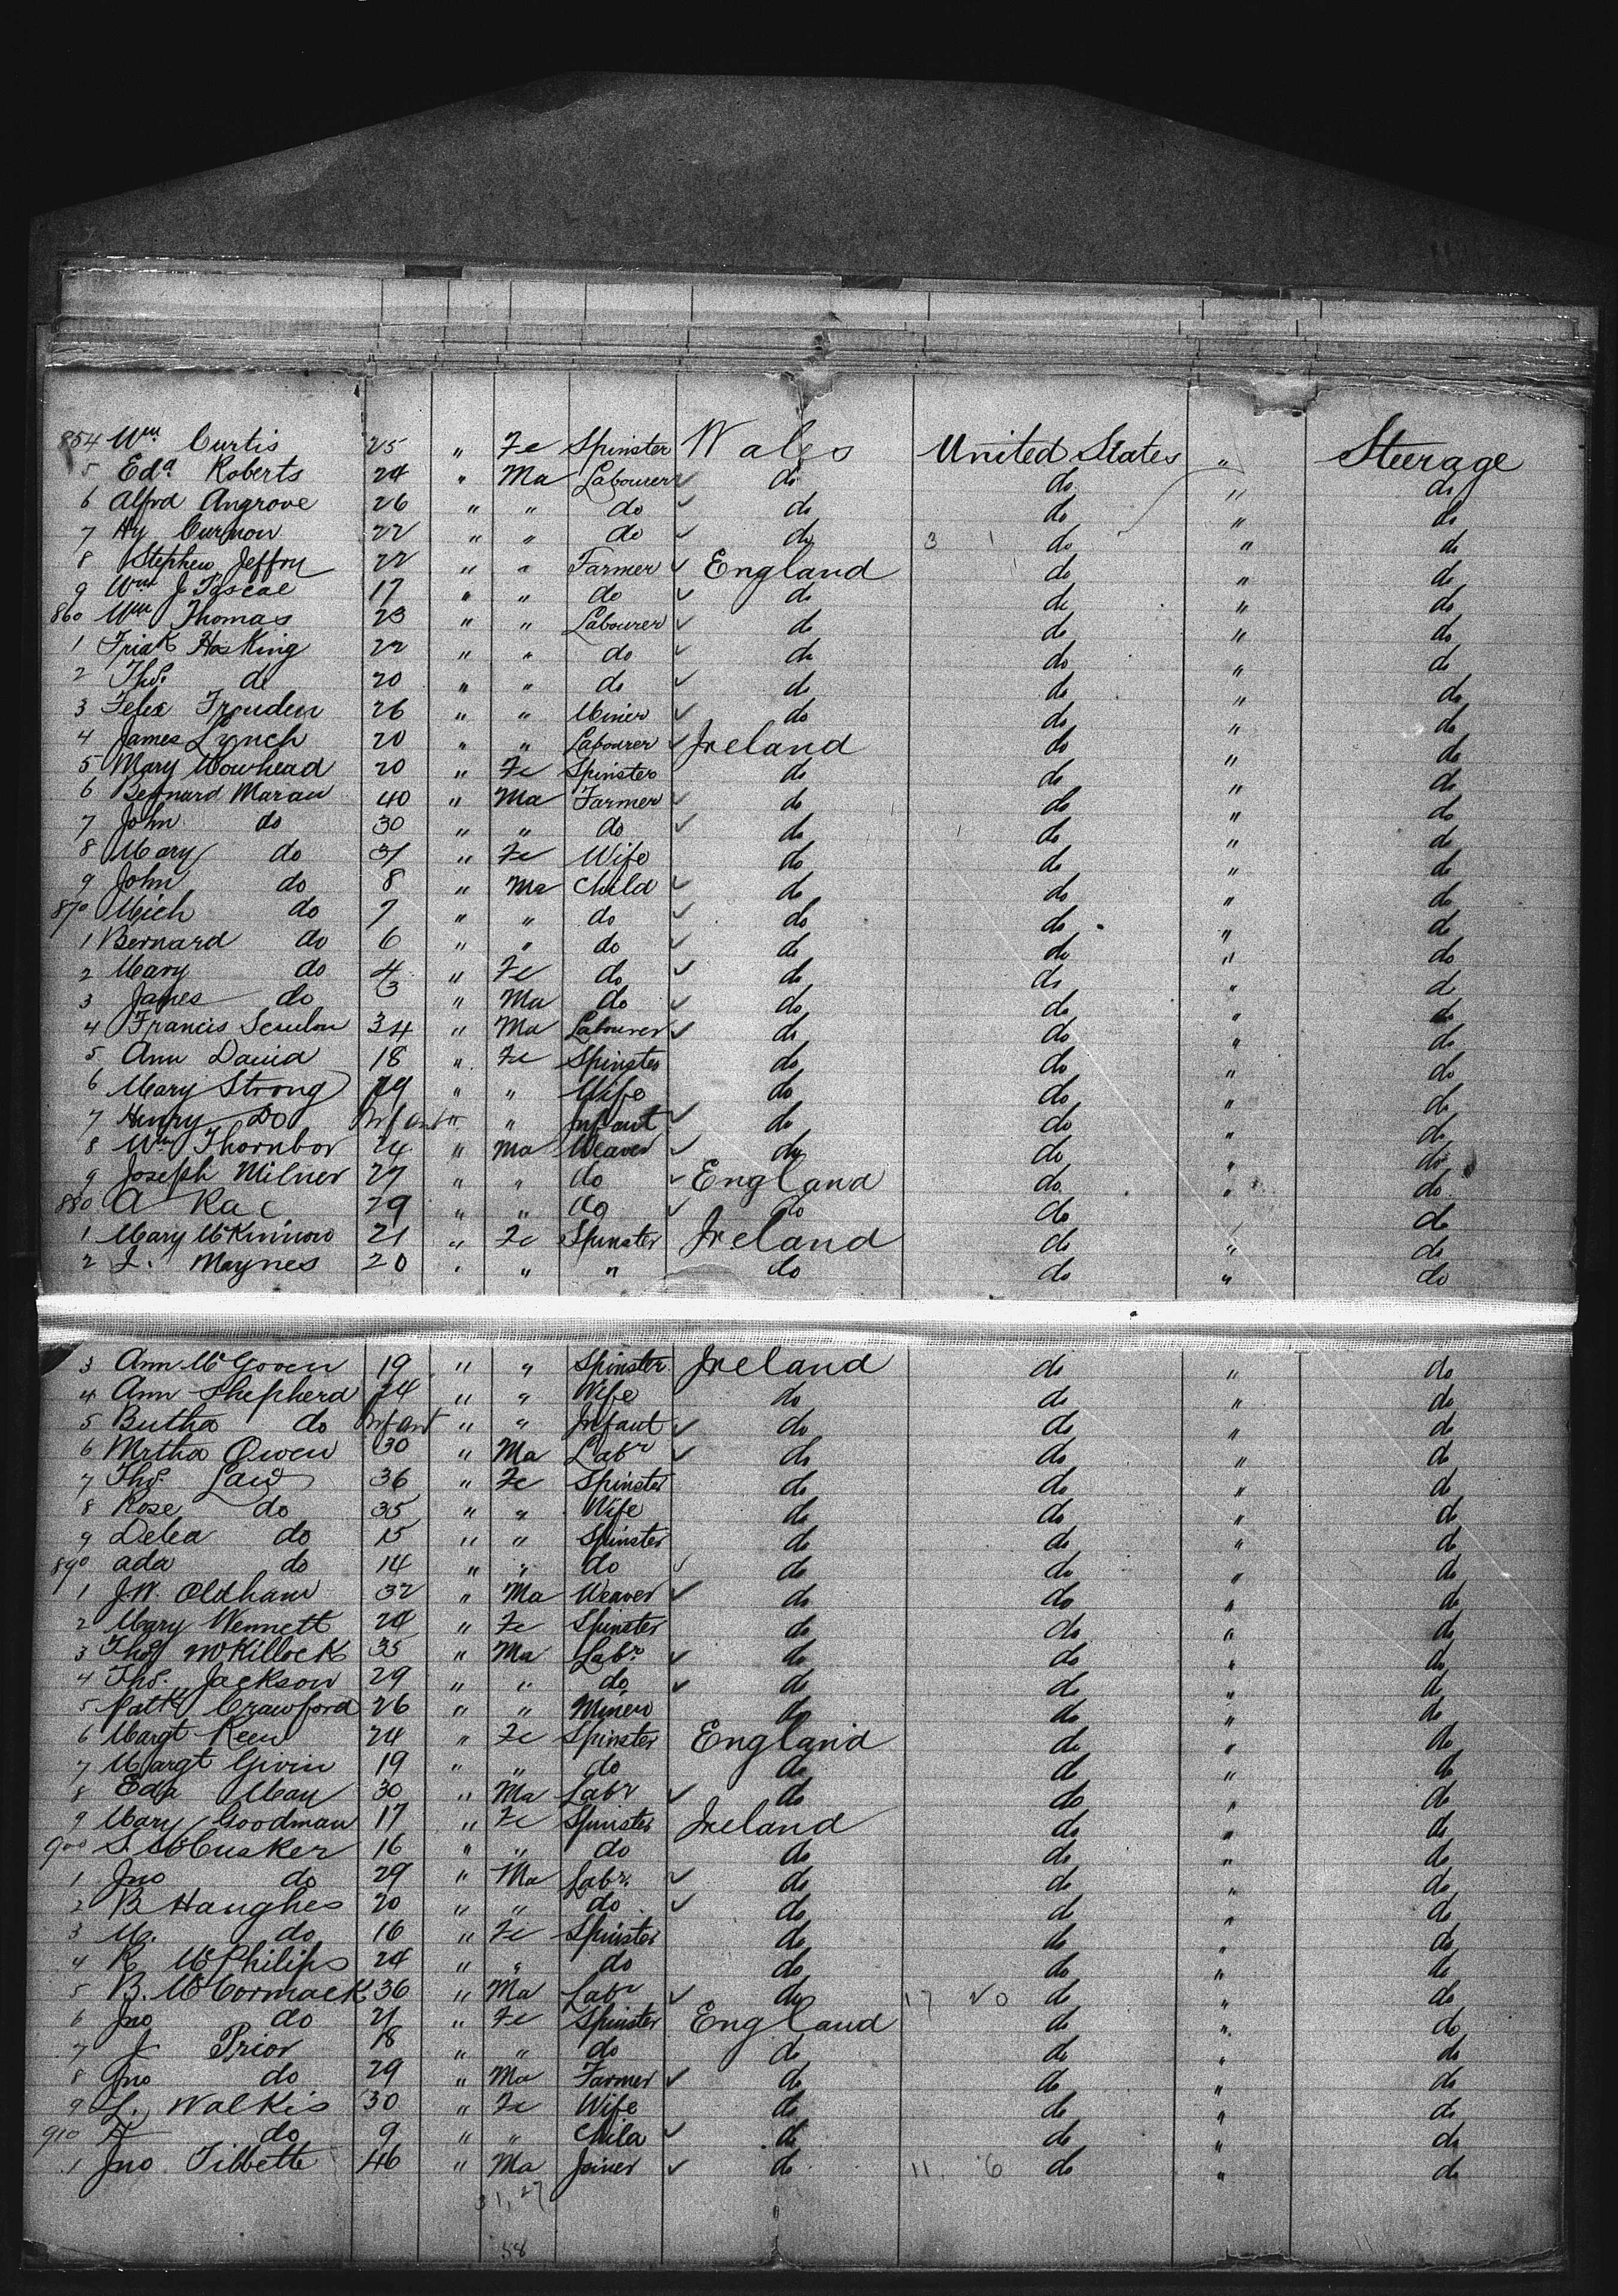 854 Wm Curtis 25 " Fe Spinster Wales United States " Steerage
5 Edd Roberts 24 " Ma Labourer do do " do
6 Alfrd Angrove 26 " " do do do " do
7 Hy Curnow 22 " " do do 3 1 do " do
8 Stephen Jeffry 22 " " Farmer England do " do
9 Wm J Pascal 17 " " do do do " do
860 Wm Thomas 23 " " Labourer do do " do
1 Hosking 22 " " do do do " do
2 Thos do 20 " " do do do " do
3 Felix 26 " " Miner do do " do
4 James Lynch 20 " " Labourer Ireland do " do
5 Mary 20 " Fe Spinster do do " do
6 Bernard Maran 40 " Ma Farmer do do " do
7 John do 30 " " do do do " do
8 Mary do 31 " Fe Wife do do " do
9 John do 8 " Ma Child do do " do
870 Mich do 7 " " do do do " do
1 Bernard do 6 " " do do do " do
2 Mary do 4 " Fe do do do " do
3 James do 3 " Ma do do do " do
4 Francis 34 " Ma Labourer do do " do
5 Ann David 18 " Fe Spinster do do " do
6 Mary Strong 29 " " Wife do do " do
7 Henry Do Infant " " Infant do do " do
8 Wm Thornbor 24 " Ma Weaver do do " do
9 Joseph Milner 27 " " do England do " do
880 A Rae 29 " " do do do " do
1 Mary McKinnow 21 " Fe Spinster Ireland do " do
2 L. Maynes 20 " " " do do " do
3 Ann McGoven 19 " " Spinster Ireland do " do
4 Ann Shepherd 24 " " Wife do do " do
5 Butha do Infant " " Infant do do " do
6 Mrtha Owen 30 " Ma Labr do do " do
7 Thos Law 36 " Fe Spinster do do " do
8 Rose do 35 " " Wife do do " do
9 Delea do 15 " " Spinster do do " do
890 ada do 14 " " do do do " do
1 J.W. Oldham 32 " Ma Weaver do do " do
2 Mary Wennett 20 " Fe Spinster do do " do
3 Thos McKillock 35 " Ma Labr do do " do
4 Thos. Jackson 29 " " do do do " do
5 Patk Crawford 26 " " Miner do do " do
6 Margt Keen 24 " Fe Spinster England do " do
7 Margt Givin 19 " " do do do " do
8 Edd Man 30 " Ma Labr do do " do
9 Mary Goodman 17 " Fe Spinster Ireland do " do
900 S. McCusker 16 " " do do do " do
1 Jno do 29 " Ma Labr. do do " do
2 B Haughes 20 " " do do do " do
3 M. do 16 " Fe Spinster do do " do
4 R McPhilips 24 " " do do do " do
5 B. McCormack 36 " Ma Labr do 17 20 do " do
6 Jno do 21 " Fe Spinster England do " do
7 J Prior 18 " " do do do " do
8 Jno do 29 " Ma Farmer do do " do
9 L. Walkis 30 " Fe Wife do do " do
910 A do 9 " " Child do do " do
1 Jno Tibbette 46 " Ma Joiner do 11. 6 do " do
31, 27
58